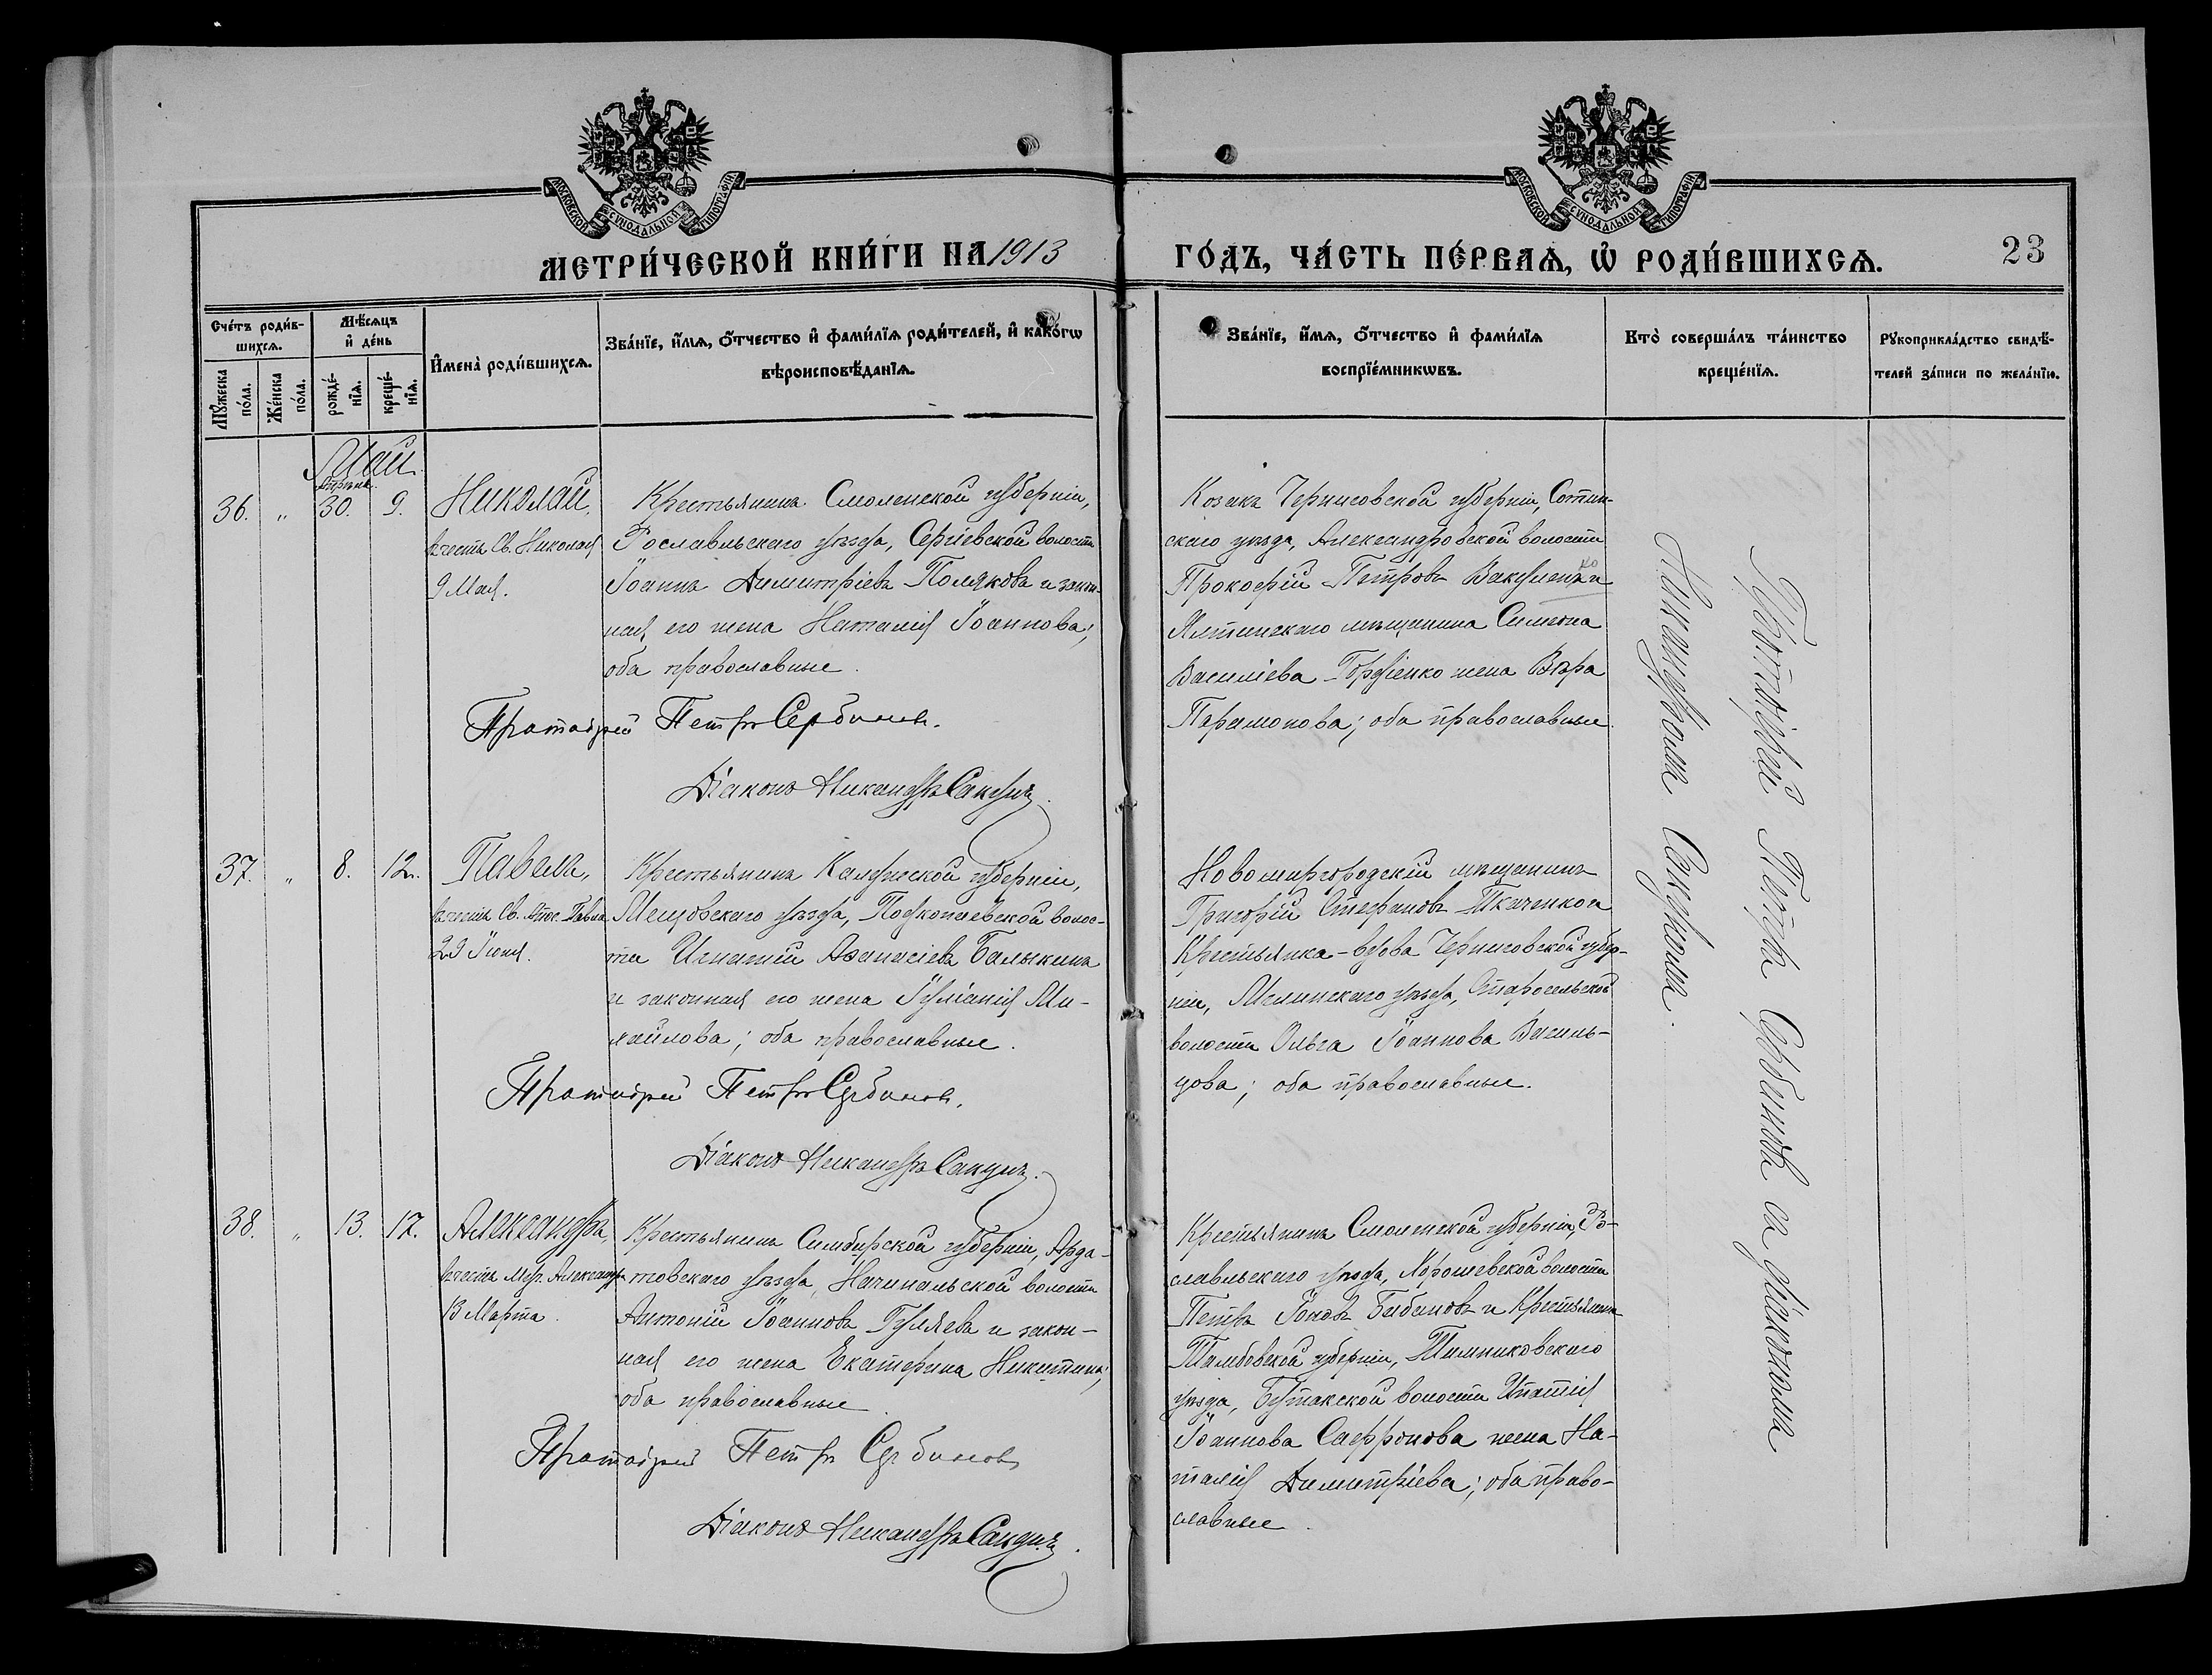 МОСКОВСКОЙ СѴНОДАЛЬНОЙ ТИПОГРАФІИ
МОСКОВСКОЙ СѴНОДАЛЬНОЙ ТИПОГРАФІИ
МЕТРИ́ЧЕСКОЙ КНИ́ГИ НА 1913
ГО́ДЪ, ЧА́СТЬ ПЕ́РВАѦ, Ѽ РОДИ́ВШИХСѦ.
23
Сче́тъ роди́в-
шихсѧ.
Мѣ́сѧцъ
и де́нь
Мꙋ́жеска по́ла.
Же́нска по́ла.
рожде́-
нїѧ.
креще́-
нїѧ.
Имена̀ роди́вшихсѧ.
Зва́нїе, и́мѧ, о́тчество и фами́лїѧ роди́телей, и како́гѡ
вѣроисповѣ́данїѧ.
Зва́нїе, и́мѧ, о́тчество и фами́лїѧ
воспрїе́мникѡвъ.
Кто̀ соверша́лъ та́инство
креще́нїѧ.
Рꙋкоприкла́дство свидѣ́-
телей за́писи по жела́нїю.
Май
Апрѣля
36. " 30. 9. Николай,
въ честь Св. Николая
9 Мая.
Крестьянинъ Смоленской губерніи,
Рославльскаго уѣзда, Сергіевской волости
Іоаннъ Димитріевъ Поляковъ и закон-
ная его жена Наталія Іоаннова;
оба православные.
Протоіерей Петръ Сербиновъ.
Діаконъ Никандръ Сакунъ.
Козакъ Черниговской губерніи, Сосниц-
скаго уѣзда, Александровской волости
Прокофій Петровъ Вакуленко и
Ялтинскаго мѣщанина Симеона
Василіева Гордіенко жена Вѣра
Парамонова; оба православные.
37. " 8. 12. Павелъ,
въ честь Св. Апос. Павла
29 Іюня.
Крестьянинъ Калужской губерніи,
Мещовскаго уѣзда, Подкопаевской волос-
ти Игнатій Аѳанасіевъ Балыкинъ
и законная его жена Іуліанія Ми-
хайлова; оба православные.
Протоіерей Петръ Сербиновъ.
Діаконъ Никандръ Сакунъ.
Новомиргородскій мѣщанинъ
Григорій Стефановъ Ткаченко и
Крестьянка-вдова Черниговской губер-
ніи, Мглинскаго уѣзда, Старосельской
волости Ольга Іоаннова Василь-
цова; оба православные.
38. " 13. 17. Александръ,
въ честь Муч. Александра
13 Марта.
Крестьянинъ Симбирской губерніи, Арда-
товскаго уѣзда, Начинальской волости
Антоній Іоанновъ Гуляевъ и закон-
ная его жена Екатерина Никитина;
оба православные.
Протоіерей Петръ Сербиновъ
Діаконъ Никандръ Сакунъ.
Крестьянинъ Смоленской губерніи, Ро-
славльскаго уѣзда, Хорошевской волости
Петръ Іоновъ Бибиковъ и Крестьянина
Тамбовской губерніи, Темниковскаго
уѣзда, Бутакской волости Ипатія
Іоаннова Сафронова жена На-
талія Димитріева; оба право-
славные.
Протоіерей Петръ Сербиновъ съ діакономъ
Никандромъ Сакуномъ.